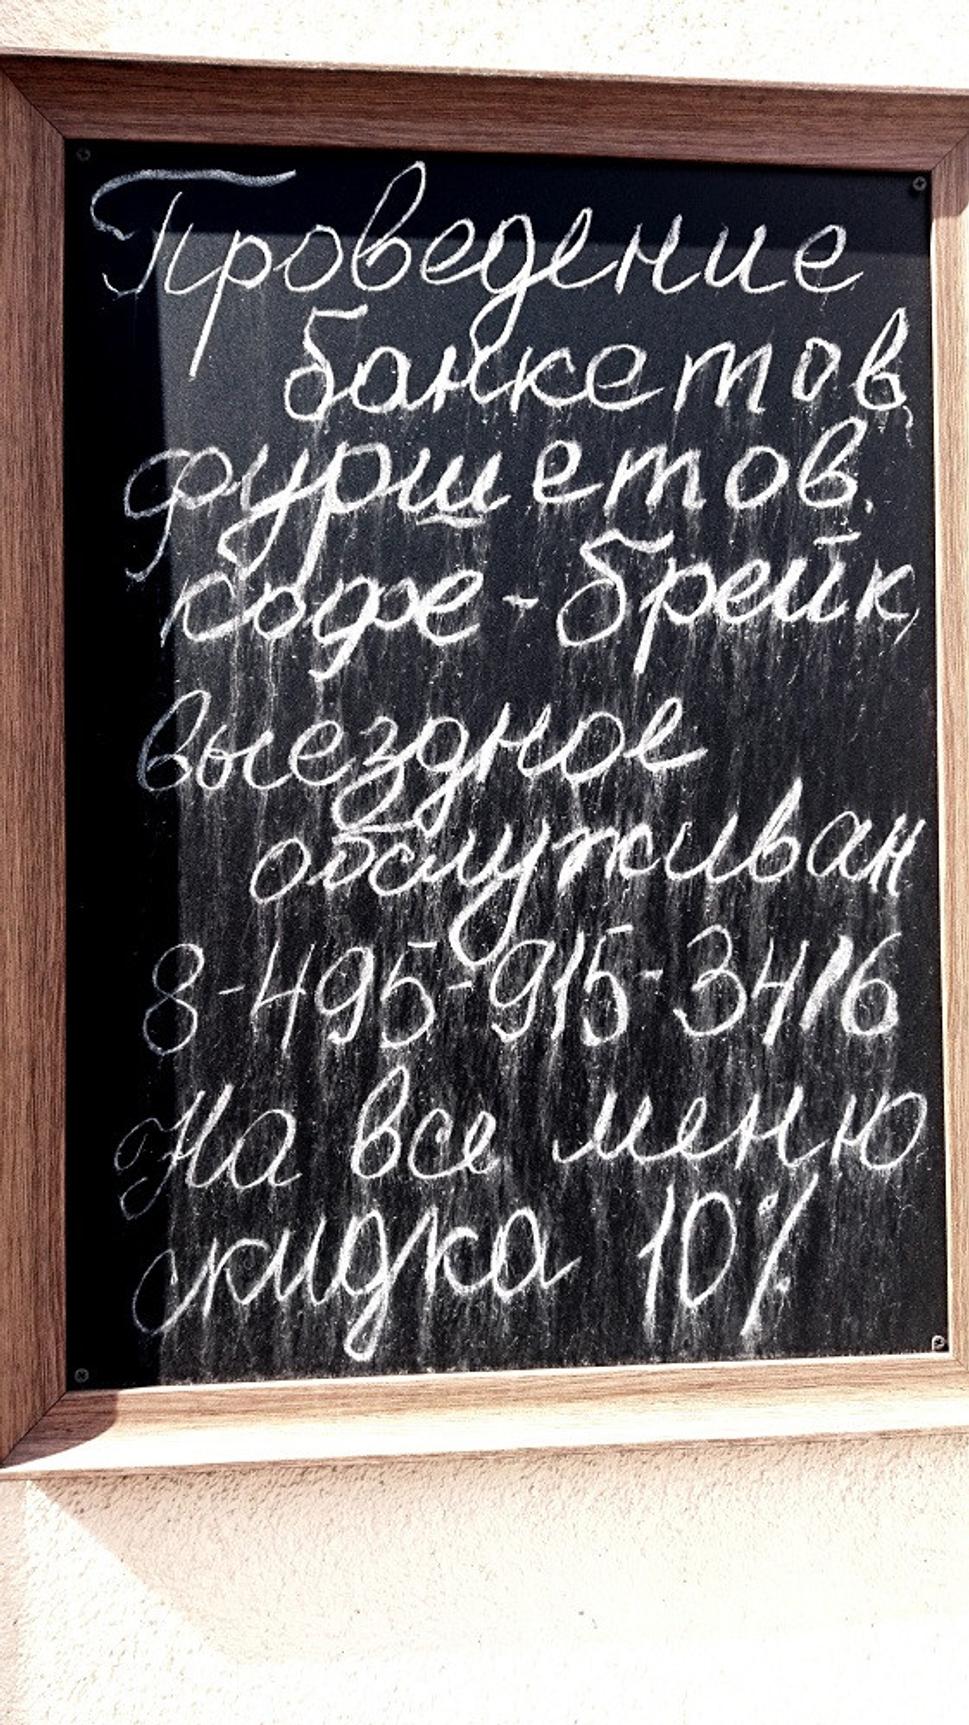 Проведение
банкетов,
фуршетов.
кофе-брейк,
выездное
обслуживан
8-495-915-3416
На все меню
скидка 10%